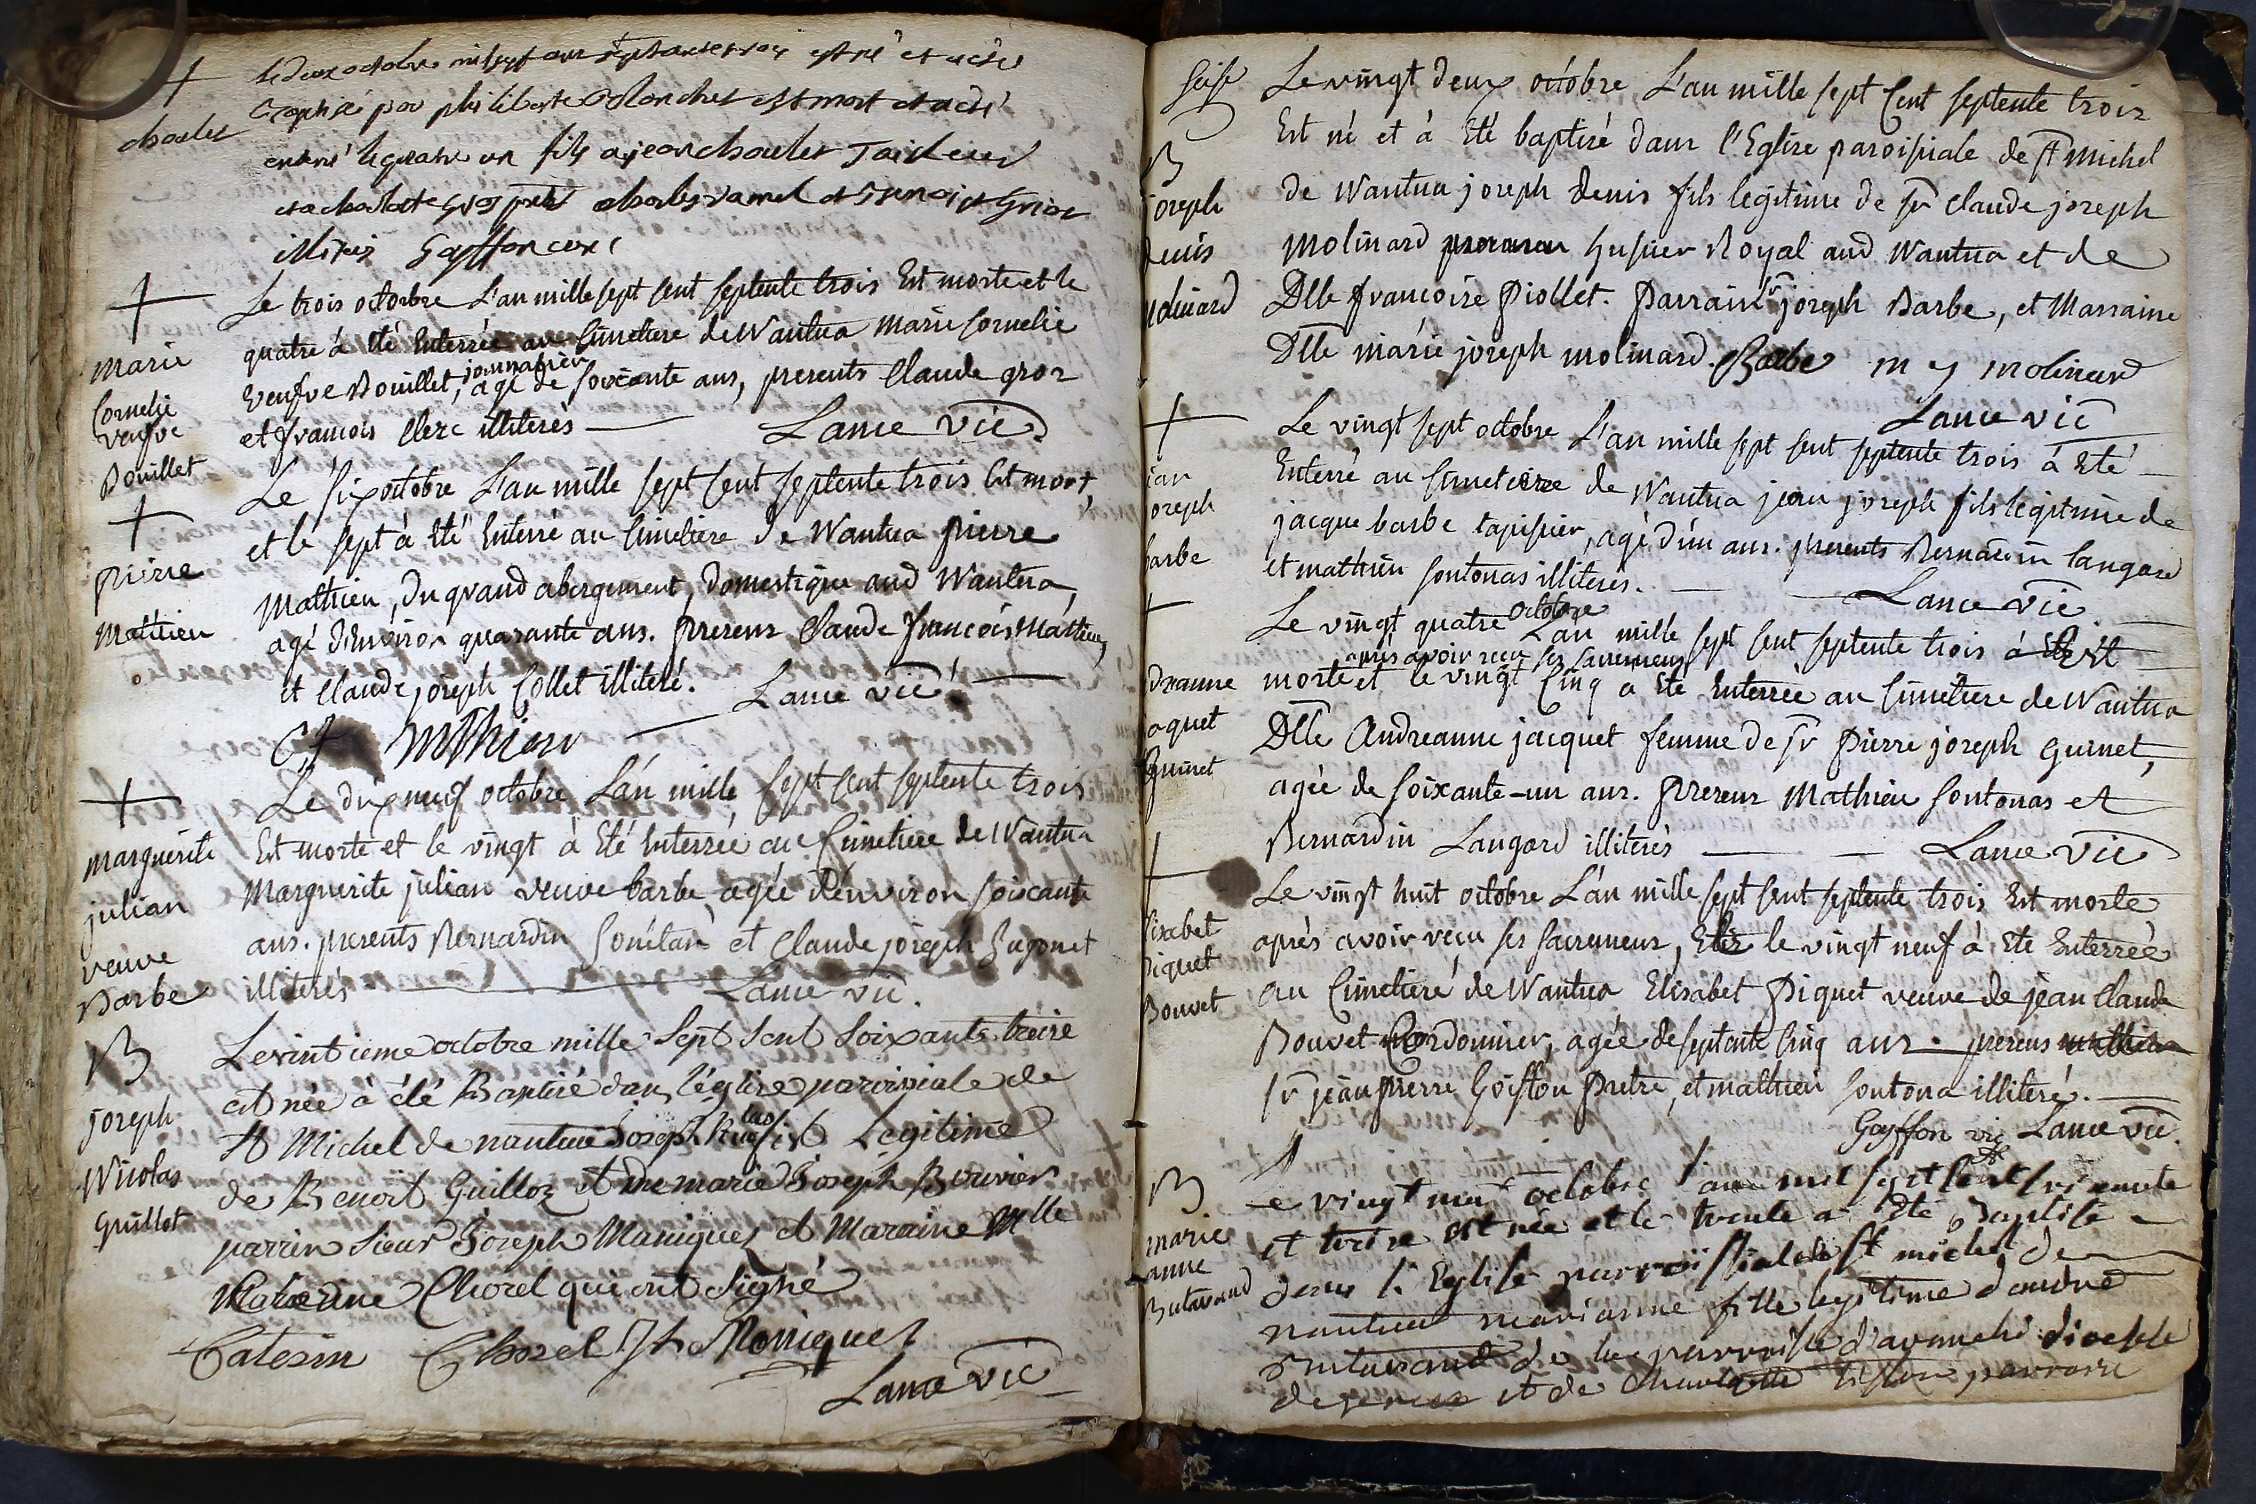 ✝
choulet
le deux octobre mil sept cent septante trois est né et a été
par philiberte Blonchet est mort et a été
enterré le quatre un fils a jean choulet Tailleur
et a gros charles ramel et
illiteres Gayffon curé
✝
Marie
Cornelie
veufve
Bouillet
Le trois octobre L'an mille sept sent septente trois Est morte et le
quatre à Eté Enterrée au Cimetiere de Nantua Marie Cornelie
veufve Bouillet, journaliere agé de soixante ans, presents Claude gros
et francois Clerc illiterés Lance vic
✝
Pierre
Mathieu
Le six octobre L'an mille sept sent septente trois Est mort,
et le sept à Eté Enterré au Cimetiere de Nantua Pierre
Mathieu, du grand abergement, domestique aud Nantua,
agé d'Environ quarante ans. Presens Claude françois Mathieu,
et Claude joseph Collet illiteré. Lance vic
C f mthieu
✝
Marguerite
julian
veuve
Barbe
Le dix neuf octobre L'an mille sept sent septente trois
Est morte et le vingt à Eté Enterrée au Cimetiere de Nantua
Marguerite julian veuve barbe, agée d'environ soixante
ans. presents Bernardin et Claude joseph
illiterés Lance vic.
B
joseph
Nicolas
Guillot
Le vintieme octobre mille Sept Sent Soixante treize
est née à été Baptisé dans l'église paroisiale de
St Michel de nantua Joseph Nicolas fils Legitime
de Benoit Guilloz et de marie Joseph Bouvier
parrin Sieur Joseph Maniquet et Maraine Mlle
Catherine Chorel qui ont Signé
Caterin Chorel Jh Moniquet
Lance vic
B
joseph
denis
Molinard
Le vingt deux octobre L'an mille sept Cent septente trois
Est né et à Eté baptisé dans l'Eglise paroissiale de St Michel
de Nantua joseph denis fils legitime de sr Claude joseph
Molinard husier Royal aud Nantua et de
Dlle francoise Piollet. Parrain sr joseph Barbe, et Marraine
Dlle marie joseph molinard. Barbe m j molinard
Lance vic
✝
jean
joseph
barbe
Le vingt sept octobre L'an mille sept sent septente trois à Eté
Enterré au simetiere de Nantua jean joseph fils legitime de
jacque barbe tapisier, agé d'un ans. presents Bernardin Langard
et mathieu sontonas illiteres. Lance vic
✝
Andreanne
jaquet
Guinet
Le vingt quatre octobre L'an mille sept sent septente trois à Est
morte après avoir reçu ses sacremens et le vingt Cinq a Eté Enterrée au Cimetiere de Nantua
Dlle Andreanne jacquet femme de sr Pierre joseph guinet,
agée de soixante-un ans. Presens Mathieu sontonas et
Bernardin Langard illiterés Lance vic
✝
Elisabet
Piquet
Bouvet
Le vingt huit octobre L'an mille sept sent septente trois Est morte
après avoir reçu ses sacremens, Et le vingt neuf à Eté Enterrée
au Cimetiere de Nantua Elisabet Piquet veuve de jean Claude
Bouvet Cordonnier, agée de septente Cinq ans. presens
sr jean Pierre Goiffon Pretre, et mathieu sontona illiteré.
Gayffon vic Lance vic.
B
marie
anne
Butavand
Le vingt neuf octobre l'an mil sept Cent soixante
et treize est née et le trente a Eté Baptisé
dans l'Eglise parroissiale de St michel de
nantua marianne fille legitime d'andré
Butavand de la parroisse d'avanché diocese
de et de parrain